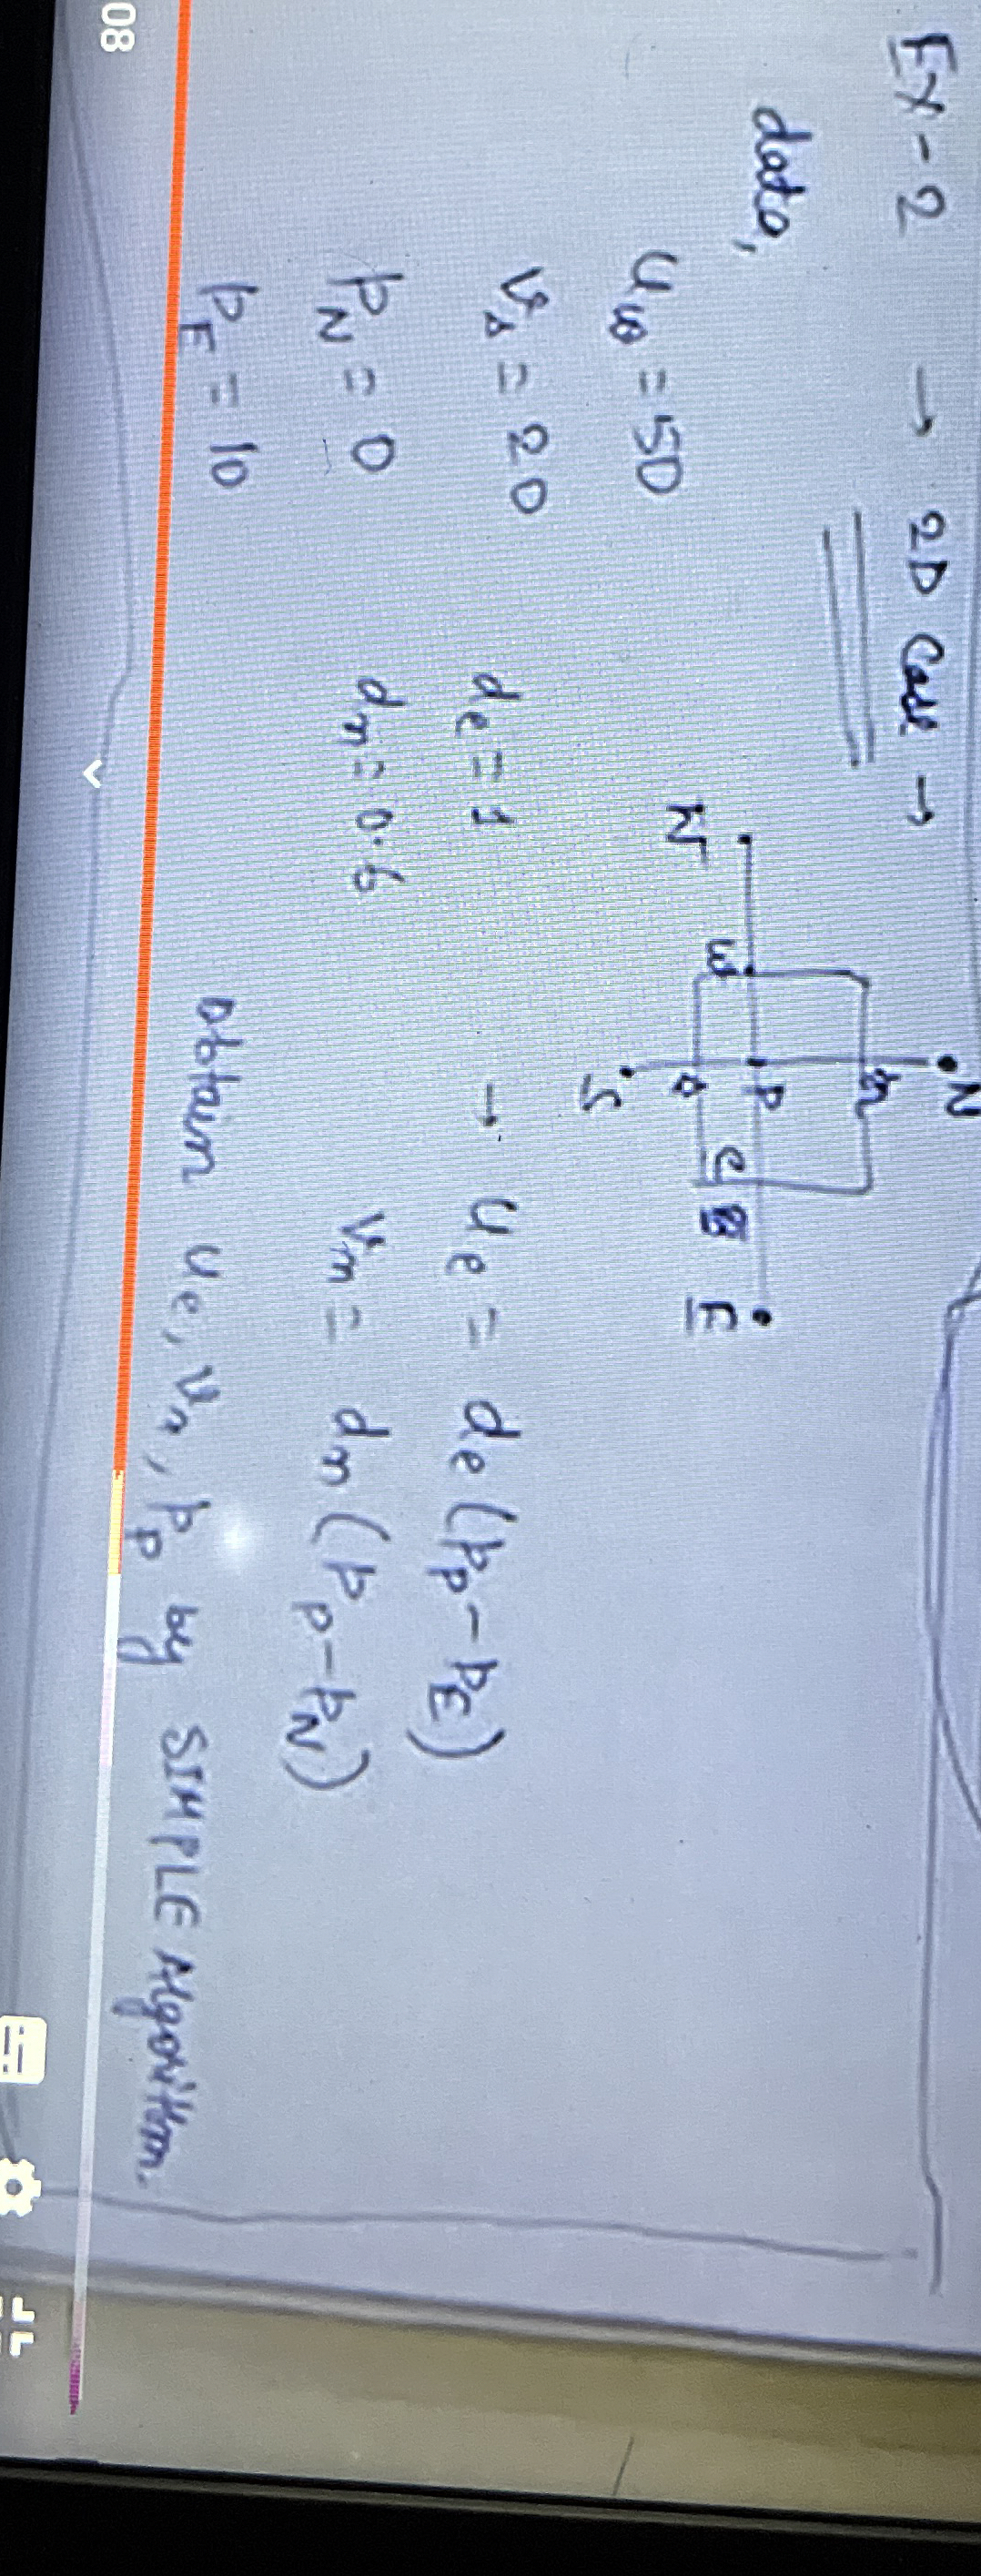 Ex-2 → 2D Case →
N
n
W w P e E
s
S
data,
u_w = 50
v_s = 20
p_N = 0
p_E = 10
d_e = 1 → u_e = d_e (p_p - p_E)
d_n = 0.6 v_n = d_n (p_p - p_N)
Obtain u_e, v_n, p_p by SIMPLE Algorithm.
08